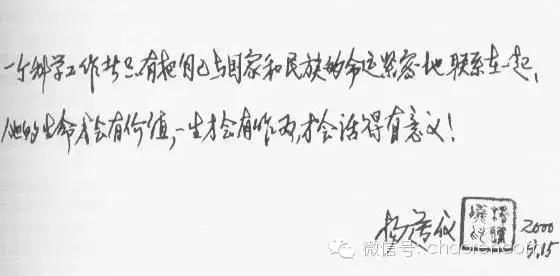 一个科学工作者只有把自己与国家和民族的命运紧密地联系在一起,
他的生命才会有价值,一生才会有作为,才会活得有意义!
杨嘉仪
2000
9.15
微信号: chaoren009